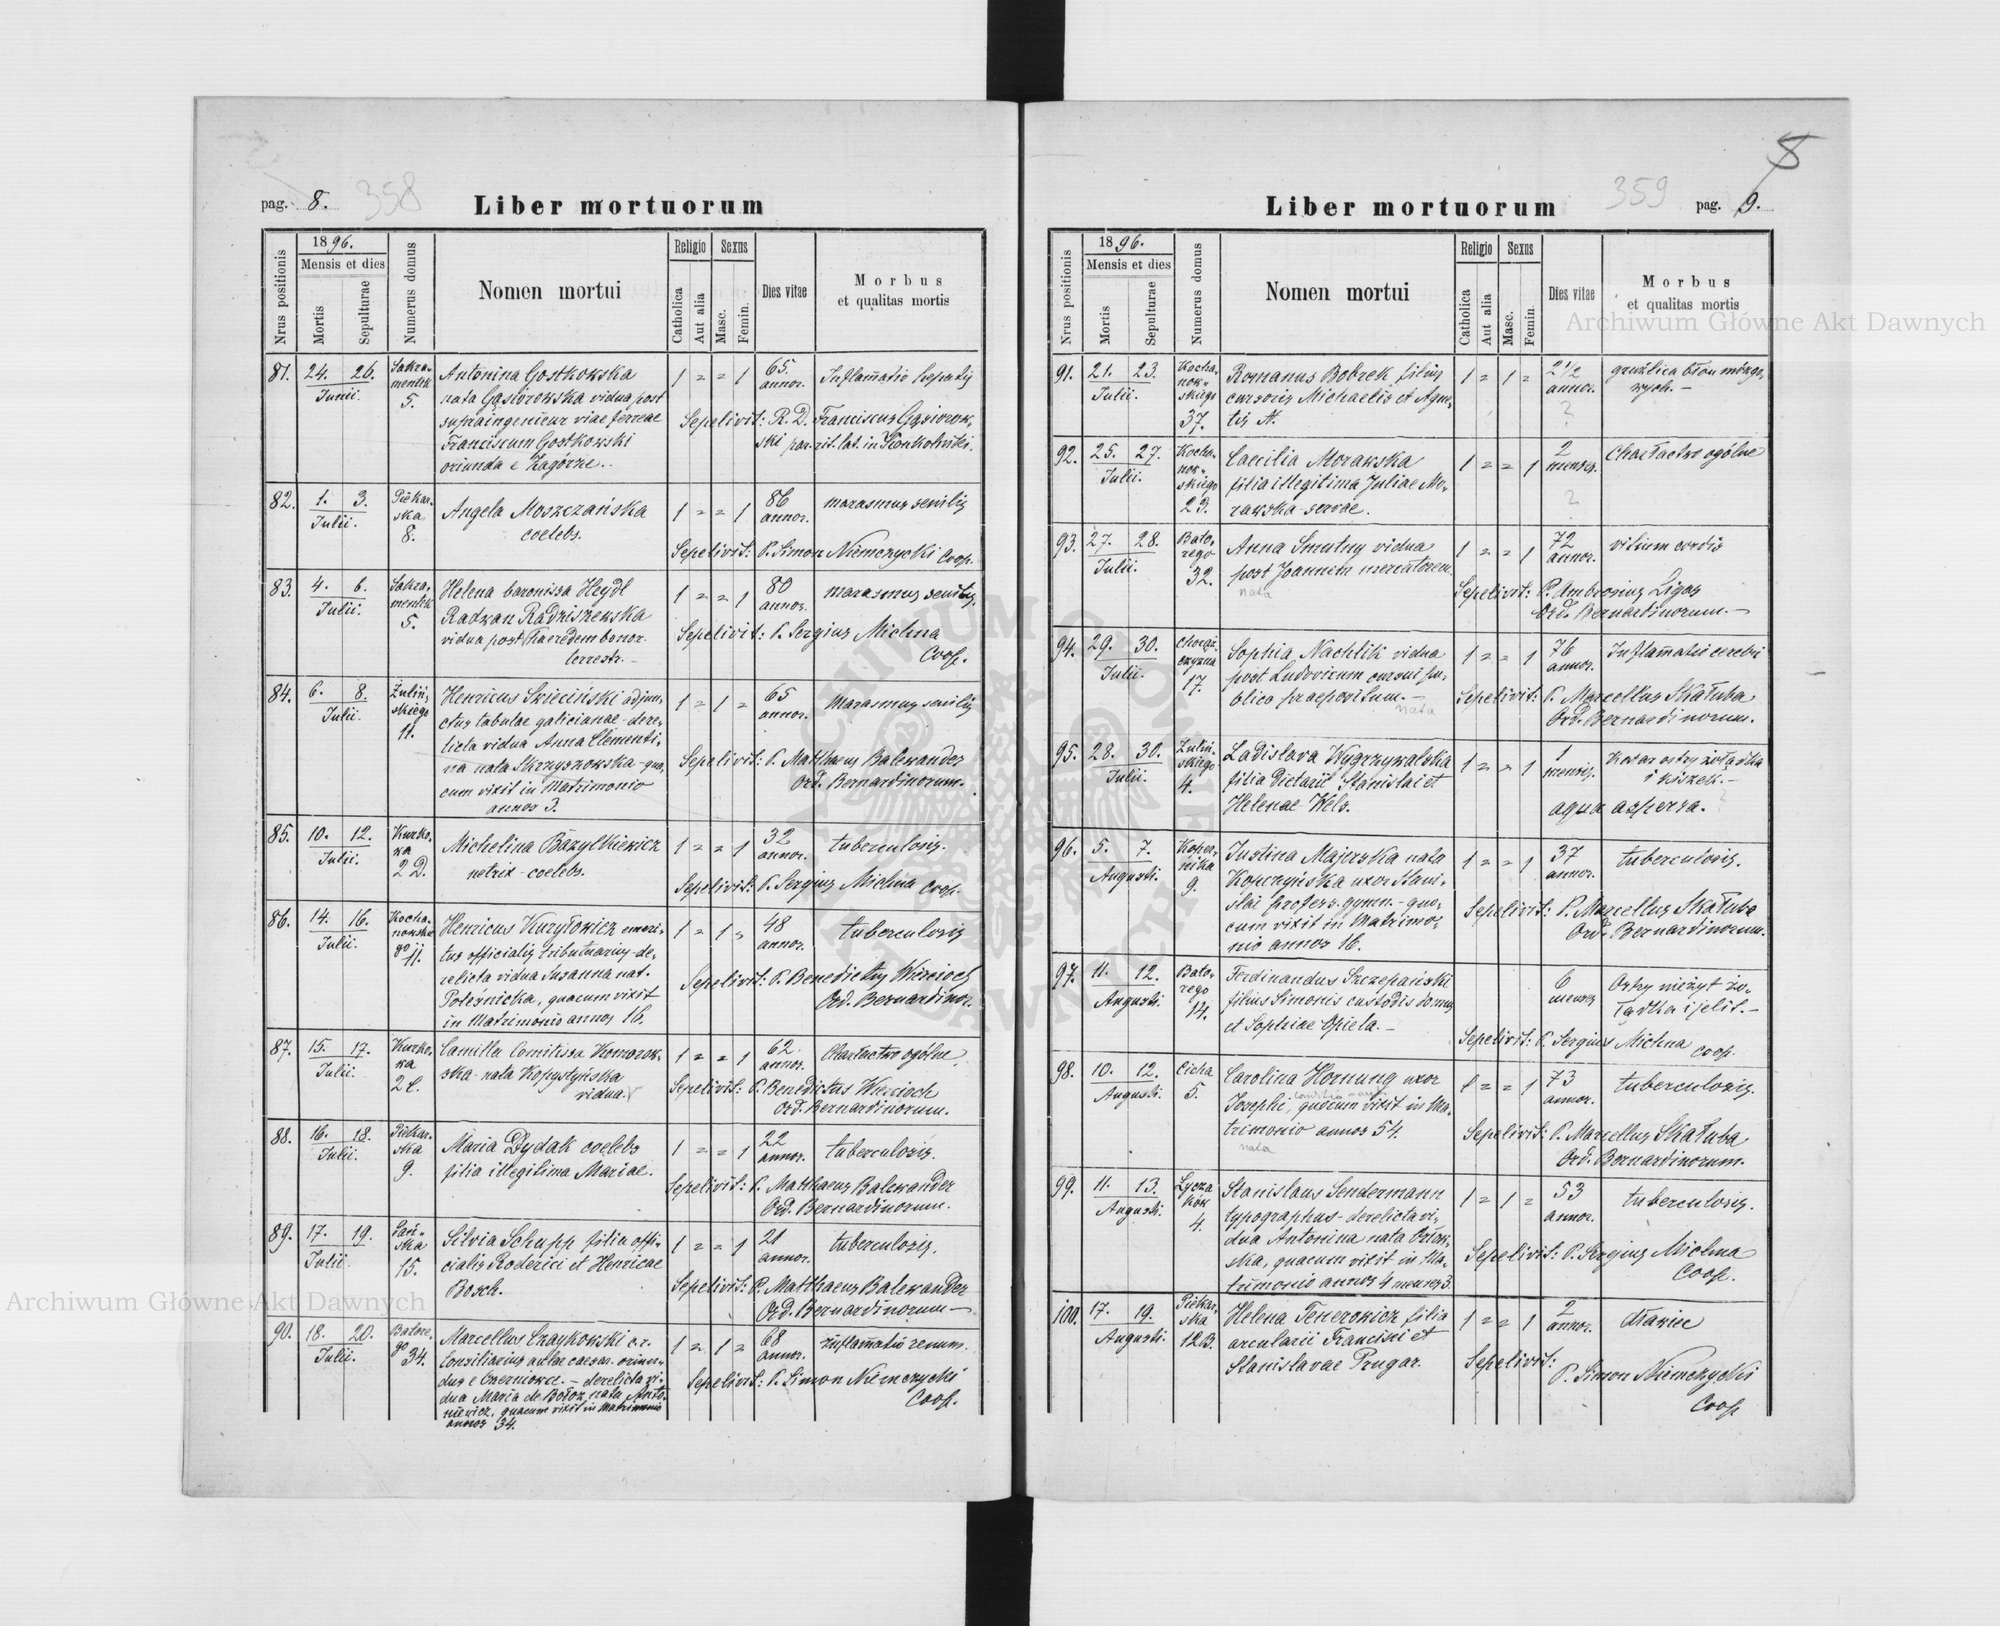 pag. 8. 358
Liber mortuorum
Nrus positionis
1896.
Mensis et dies
Mortis
Sepulturae
Numerus domus
Nomen mortui
Religio
Catholica
Aut alia
Sexus
Masc.
Femin.
Dies vitae
Morbus
et qualitas mortis
81. 24. 26. Junii. Sakra-
mentek
5.
Antonina Gostkowska
nata Gąsiorowska vidua post
supraingenieur viae ferreae
Franciscum Gostkowski
oriunda e Zagórze.
1 = = 1 65. annor. Inflam̄atio hepatis
Sepelivit: R. D. Franciscus Gąsiorow-
ski par. rit. lat. in
82. 1. 3. Julii. Piekar-
ska
8.
Angela Moszczańska
coelebs.
1 = = 1 86 annor. marasmus senilis
Sepelivit: P. Simon Niemczycki Coop.
83. 4. 6. Julii. Sakra-
mentek
5.
Helena baronissa Heydl
Radwan Radziszewska
vidua post haeredem bonor.
terrestr. -
1 = = 1 80 annor. marasmus senilis.
Sepelivit: P. Sergius Michna
Coop.
84. 6. 8. Julii. Żuliń-
skiego
11.
Henricus Świeciński adjun-
ctus tabulae galicianae - dere-
licta vidua Anna Clementi-
na nata Skrzyszowska - qua-
cum vixit in Matrimonio
annos 3.
1 = 1 = 65 annor. Marasmus senilis
Sepelivit: P. Matthaeus Balewander
Ord. Bernardinorum.
85. 10. 12. Julii. Kurko-
wa
2 D.
Michelina Bazylkiewicz
netrix - coelebs.
1 = = 1 32 annor. tuberculosis.
Sepelivit: P. Sergius Michna Coop.
86. 14. 16. Julii. Kocha-
nowskie
go 11.
Henricus Kuryłowicz emeri-
tus officialis tributarius - de-
relicta vidua Susanna nat.
Poleśnicka, quacum vixit
in Matrimonio annos 16.
1 = 1 = 48 annor. tuberculosis
Sepelivit: P. Benedictus Wiercioch
Ord. Bernardinor.
87. 15. 17. Julii. Kurko-
wa
Camilla Comitissa Komorow-
ska - nata Kopystyńska
vidua.
1 = = 1 62 annor. Charłactwo ogólne.
Sepelivit: P. Benedictus Wiercioch
Ord. Bernardinorum.
88. 16. 18. Julii. Piekar-
ska
9.
Maria Dydak coelebs
filia illegitima Mariae.
1 = = 1 22 annor. tuberculosis.
Sepelivit: P. Matthaeus Balewander
Ord. Bernardinorum.
89. 17. 19. Julii. Pań-
ska
15.
Silvia Schupp filia offi-
cialis Roderici et Henricae
Bosch.
1 = = 1 21 annor. tuberculosis.
Sepelivit: P. Matthaeus Balewander
Ord. Bernardinorum -
90. 18. 20. Julii. Batore-
go
34.
Marcellus Czaykowski c. r.
Consiliarius aulae caesar. oriun-
dus e - derelicta vi-
dua Maria de Bołoz nata Anto-
niewicz, quacum vixit in Matrimonio
annos 34.
1 = 1 = 68 annor. Inflam̄atio renum.
Sepelivit: P. Simon Niemczycki
Coop.
Liber mortuorum
359 pag. 9.
Nrus positionis
1896.
Mensis et dies
Mortis
Sepulturae
Numerus domus
Nomen mortui
Religio
Catholica
Aut alia
Sexus
Masc.
Femin.
Dies vitae
Morbus
et qualitas mortis
91. 21. 23. Julii. Kocha-
now-
skiego
37.
Romanus Bobrek filius
cursoris Michaelis et Agne-
tis N.
1 = 1 = 2 1/2 annor. gruźlica błon mózgo-
wych. -
?
92. 25. 27. Julii. Kocha-
now-
skiego
23.
Caecilia Morawska
filia illegitima Juliae Mo-
rawska servae.
1 = = 1 2 menses. Charłactwo ogólne
?
93. 27. 28. Julii. Bato-
rego
32.
Anna Smutny vidua
post Joannem mercatorem.
nata
1 = = 1 72 annor. vitium cordis
Sepelivit: P. Ambrosius Ligas
Ord. Bernardinorum. -
94. 29. 30. Julii. Chorąż-
czyzna
17.
Sophia Nachlik vidua
post Ludovicum cursui pu-
blico praepositum. -
nata
1 = = 1 76 annor. Inflam̄atio cerebri
Sepelivit: P. Marcellus Skałuba
Ord. Bernardinorum.
95. 28. 30. Julii. Żuliń-
skiego
4.
Ladislava Wygrzywalska
filia Dietarii Stanislai et
Helenae Wels.
1 = = 1 1 mensis. Katar ostry żołądka
i kiszek. -
aqua aspersa.
96. 5. 7. Augusti. Koper-
nika
9.
Justina Majerska nata
Kopczyńska uxor Stani-
slai profess. gymn. - qua-
cum vixit in Matrimo-
nio annos 16.
1 = = 1 37 annor. tuberculosis.
Sepelivit: P. Marcellus Skałuba
Ord. Bernardinorum.
97. 11. 12. Augusti. Bato-
rego
14.
Ferdinandus Szczepański
filius Simonis custodis domus
et Sophiae Opiela. -
6 menses Ostry nieżyt żo-
łądka i jelit. -
Sepelivit: P. Sergius Michna
coop.
98. 10. 12. Augusti. Cicha
5.
Carolina Hornung uxor
Josephi, quacum vixit in Ma-
trimonio annos 54.
nata
1 = = 1 73 annor. tuberculosis.
Sepelivit: P. Marcellus Skałuba
Ord. Bernardinorum.
99. 11. 13. Augusti. Łycza
kow
4.
Stanislaus Sendermann
typographus - derelicta vi-
dua Antonina nata
ska, quacum vixit in Ma-
trimonio annos 4 menses 3.
1 = 1 = 53 annor. tuberculosis.
Sepelivit: P. Sergius Michna
Coop.
100. 17. 19. Augusti. Piekar-
ska
12 B.
Helena Tenerowicz filia
arcularii Francisci et
Stanislavae Prugar.
1 = = 1 2 annor. dławiec
Sepelivit:
P. Simon Niemczycki
Coop
Archiwum Główne Akt Dawnych
Archiwum Główne Akt Dawnych